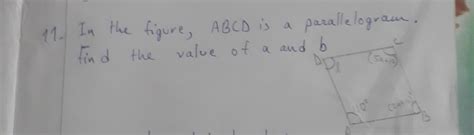 11. In the figure, ABCD is a parallelogram.
find the value of a and b
D
C
B